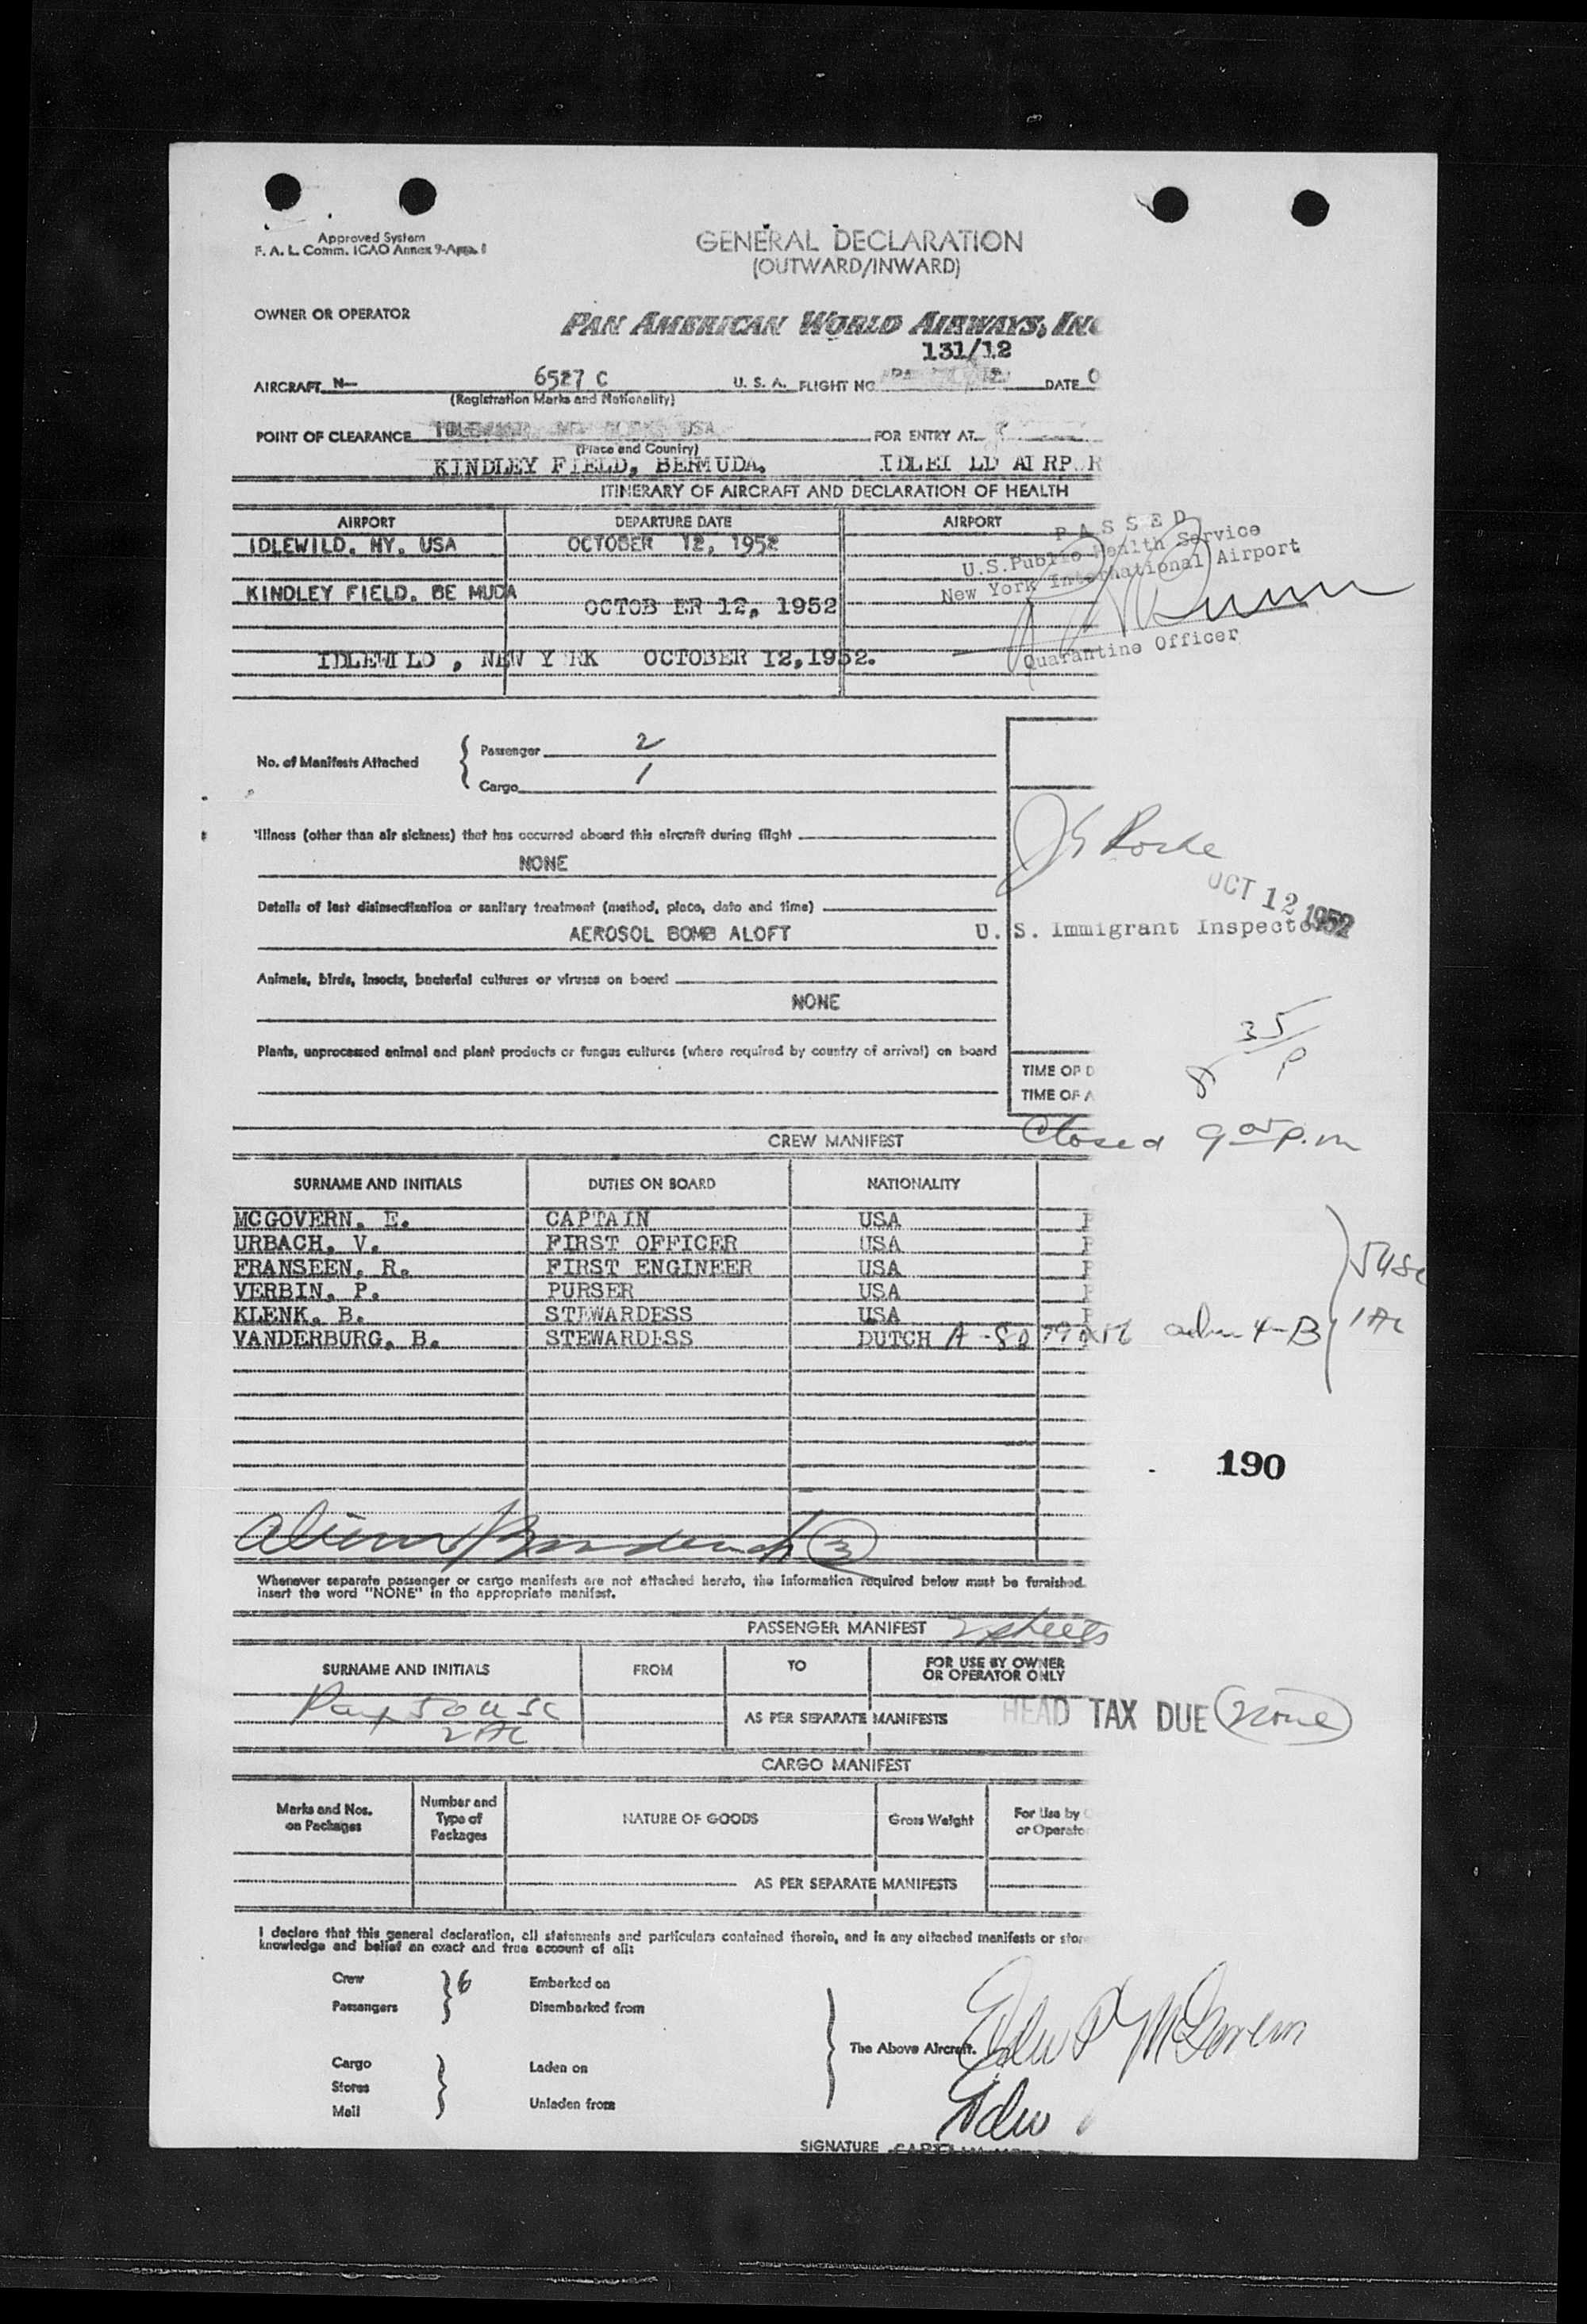 Approved System
F. A. L. Comm. ICAO Annex 9-App. 1
GENERAL DECLARATION
(OUTWARD/INWARD)
OWNER OR OPERATOR
PAN AMERICAN WORLD AIRWAYS, INC
131/12
AIRCRAFT N— 6527 C U. S. A. FLIGHT NO. DATE O
(Registration Marks and Nationality)
POINT OF CLEARANCE IDLEWILD, NEW YORK, USA FOR ENTRY AT
(Place and Country)
KINDLEY FIELD, BERMUDA. IDLEI LD AI RP R
ITINERARY OF AIRCRAFT AND DECLARATION OF HEALTH
AIRPORT DEPARTURE DATE AIRPORT
IDLEWILD. NY. USA OCTOBER 12, 1952
KINDLEY FIELD. BE MUDA OCTOB ER 12, 1952
IDLEWI LD , NEW Y RK OCTOBER 12,1952.
PASSED
U.S.Public Health Service
New York International Airport
Quarantine Officer
No. of Manifests Attached
Passenger 2
Cargo 1
Illness (other than air sickness) that has occurred aboard this aircraft during flight
NONE
Details of last disinsectization or sanitary treatment (method, place, date and time)
AEROSOL BOMB ALOFT
OCT 12 1952
U. S. Immigrant Inspector
Animals, birds, insects, bacterial cultures or viruses on board
NONE
Plants, unprocessed animal and plant products or fungus cultures (where required by country of arrival) on board
8 35 P
TIME OF D
TIME OF A
Closed 9 05 p.m
CREW MANIFEST
SURNAME AND INITIALS DUTIES ON BOARD NATIONALITY
MCGOVERN. E. CAPTAIN USA
URBACH. V. FIRST OFFICER USA
FRANSEEN. R. FIRST ENGINEER USA
VERBIN. P. PURSER USA
KLENK. B. STEWARDESS USA
VANDERBURG. B. STEWARDESS DUTCH
5 USC
1 AC
190
3
Whenever separate passenger or cargo manifests are not attached hereto, the information required below must be furnished.
insert the word "NONE" in the appropriate manifest.
PASSENGER MANIFEST 2 sheets
SURNAME AND INITIALS FROM TO FOR USE BY OWNER
OR OPERATOR ONLY
Pax 50 USC
2 AC
AS PER SEPARATE MANIFESTS
HEAD TAX DUE none
CARGO MANIFEST
Marks and Nos.
on Packages
Number and
Type of
Packages
NATURE OF GOODS Gross Weight
For Use by
or Operator
AS PER SEPARATE MANIFESTS
I declare that this general declaration, all statements and particulars contained therein, and in any attached manifests or stor
knowledge and belief an exact and true account of all:
Crew 6 Embarked on
Passengers Disembarked from
The Above Aircraft.
Edw P McGovern
Cargo Laden on
Stores
Mail Unladen from
Edw
SIGNATURE